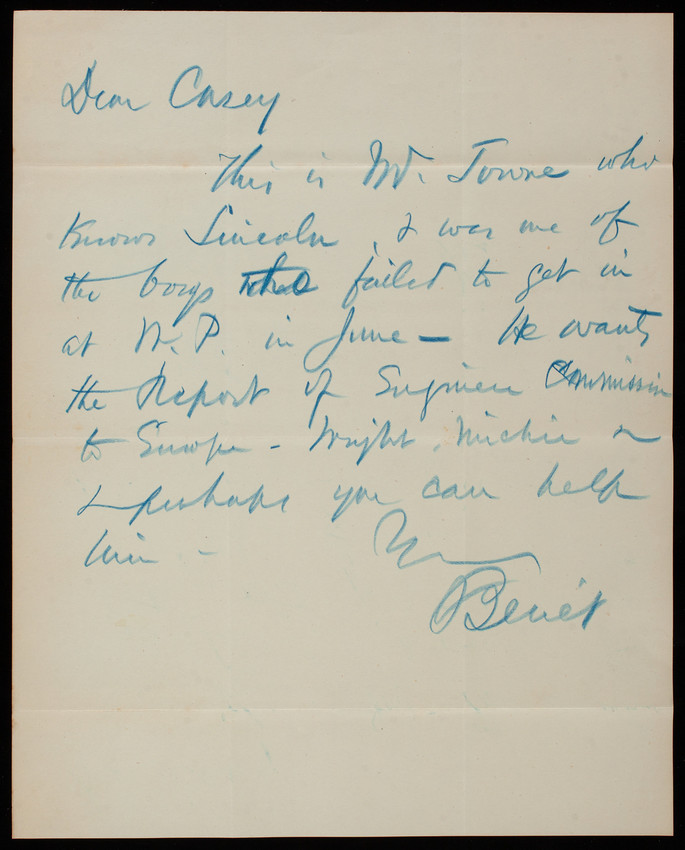 Dear Casey
This is Mr. Towne who
knows Lincoln, & was one of
the boys who failed to get in
at W.P. in June — He wants
the Report of Engineer Commission
to Europe - Wright, Michie &
& perhaps you can help
him -
Yrs
Benét